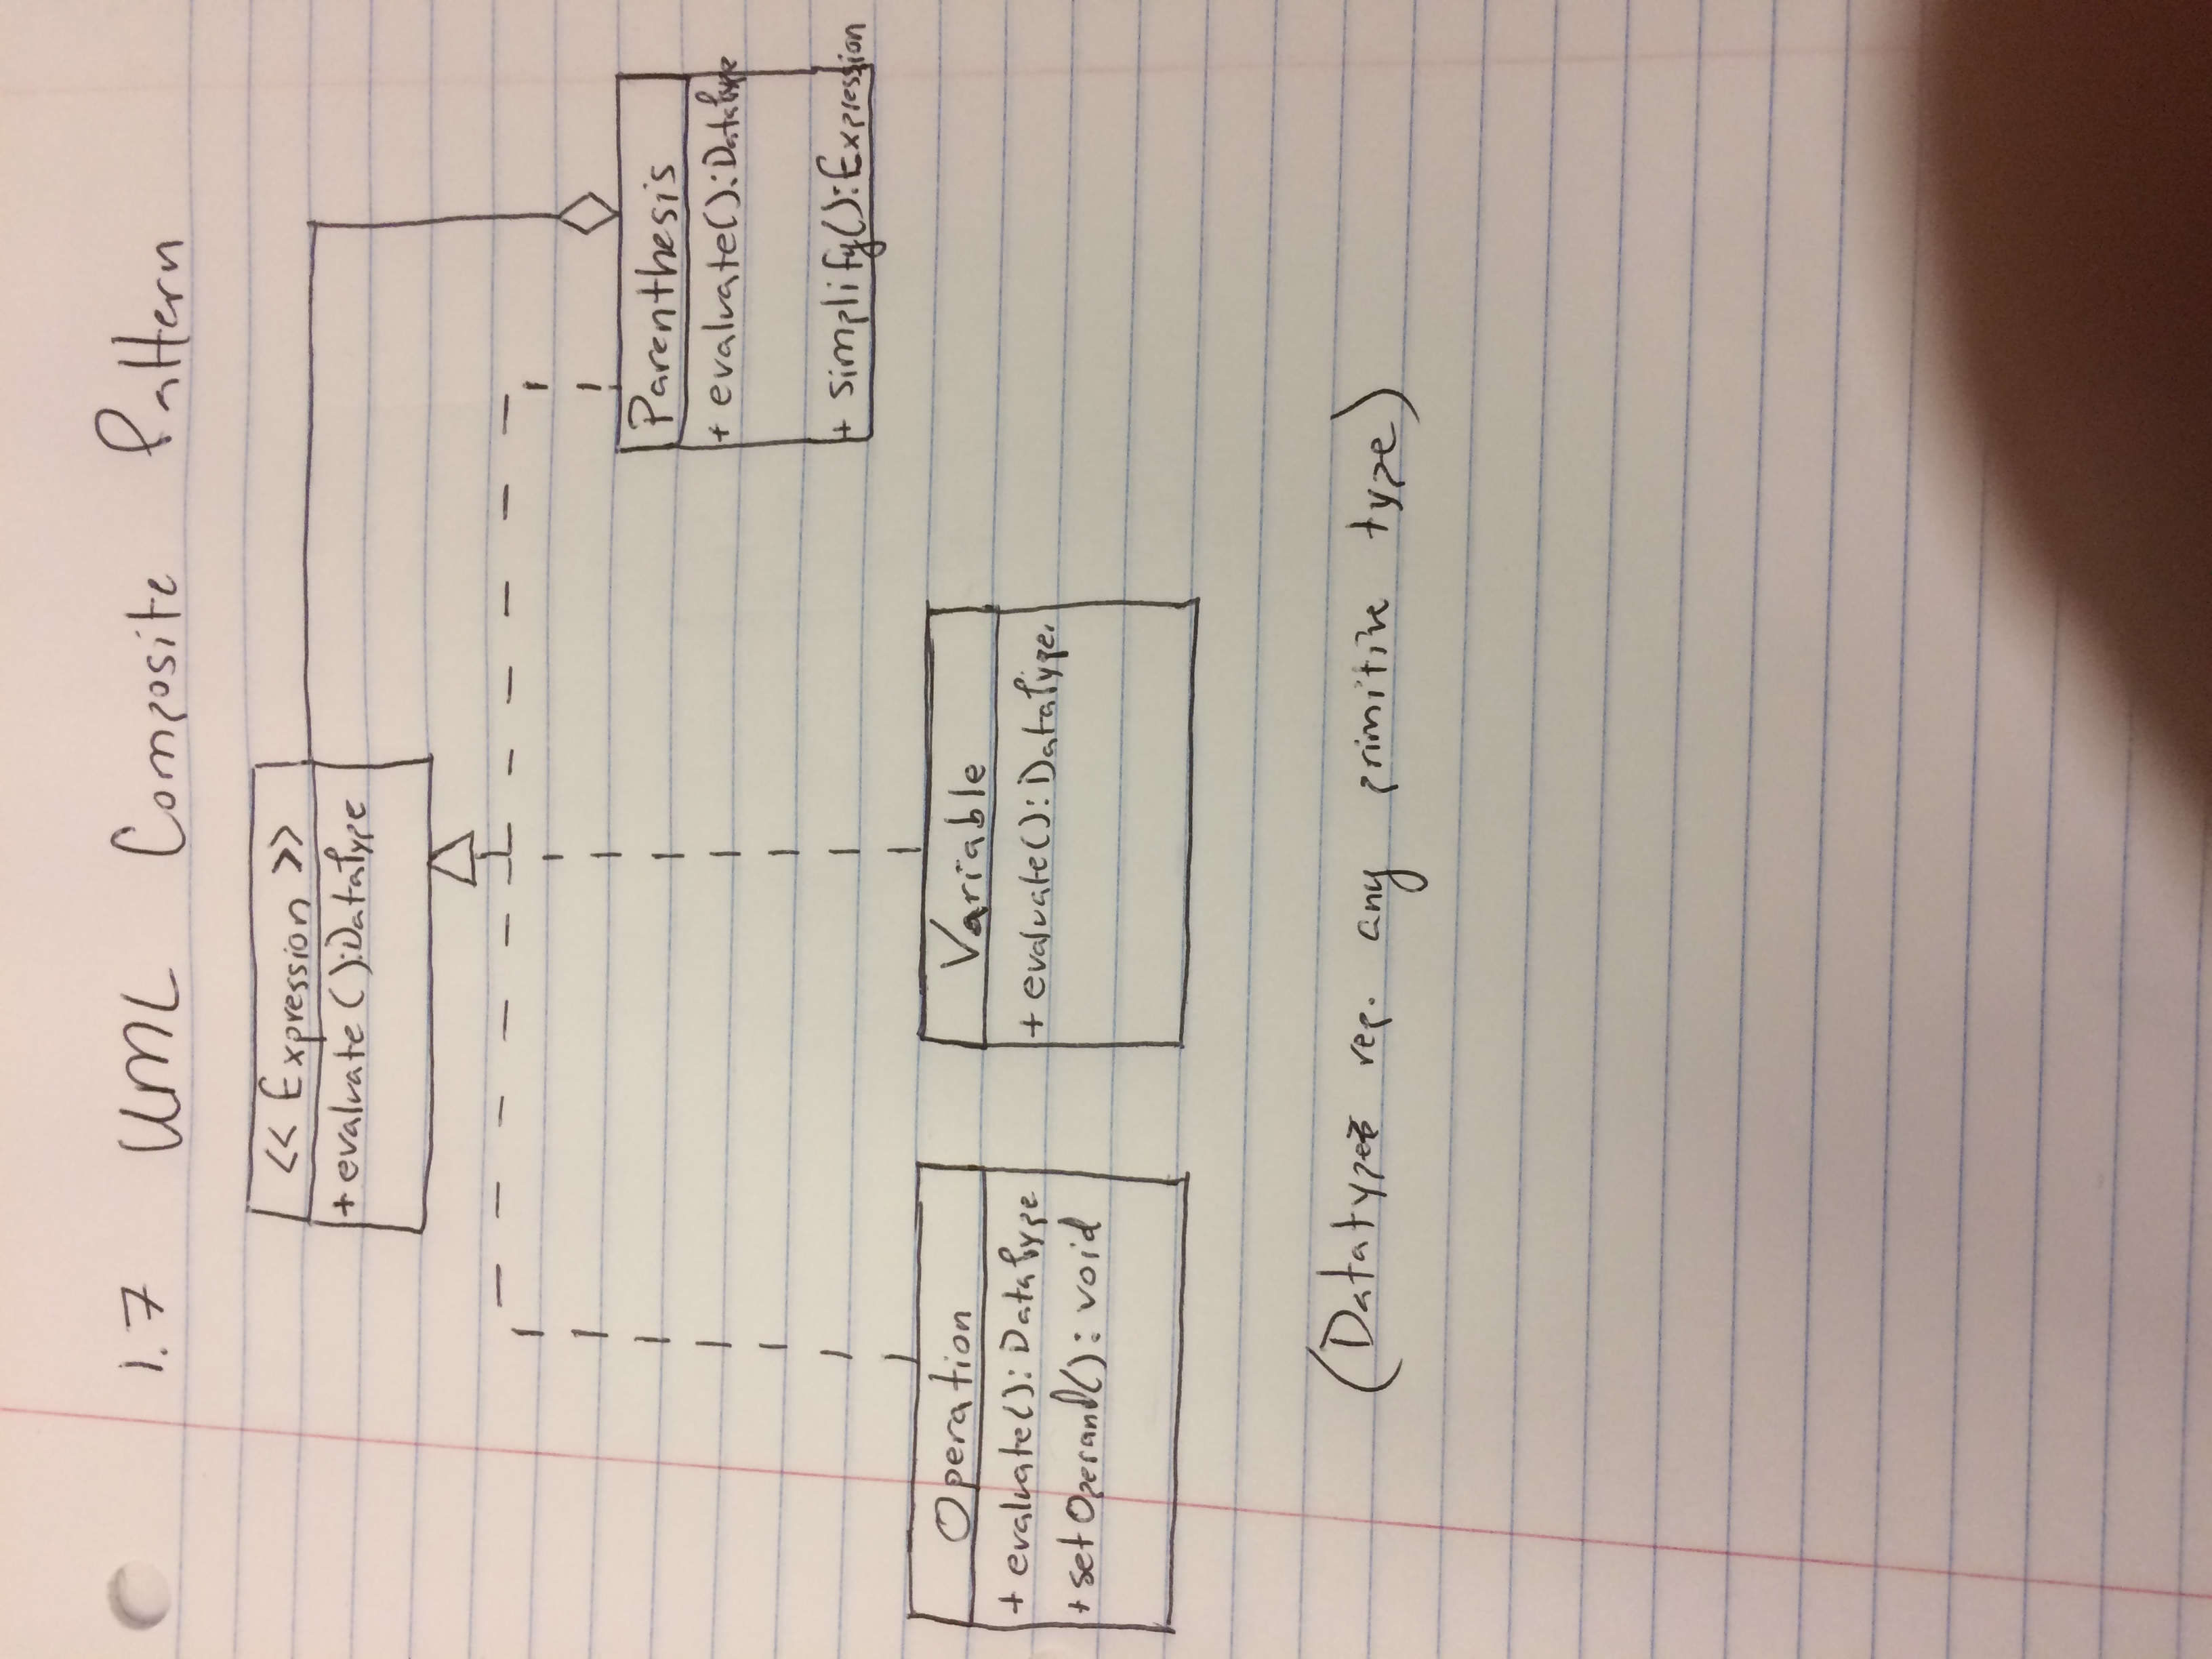 1.7 UML Composite Pattern
<< Expression >>
+ evaluate ():DataType
Parenthesis
+ evaluate():DataType
+ simplify():Expression
Operation
+ evaluate(): DataType
+ setOperand(): void
Variable
+ evaluate(): DataType.
(Datatypes rep. any primitive type)